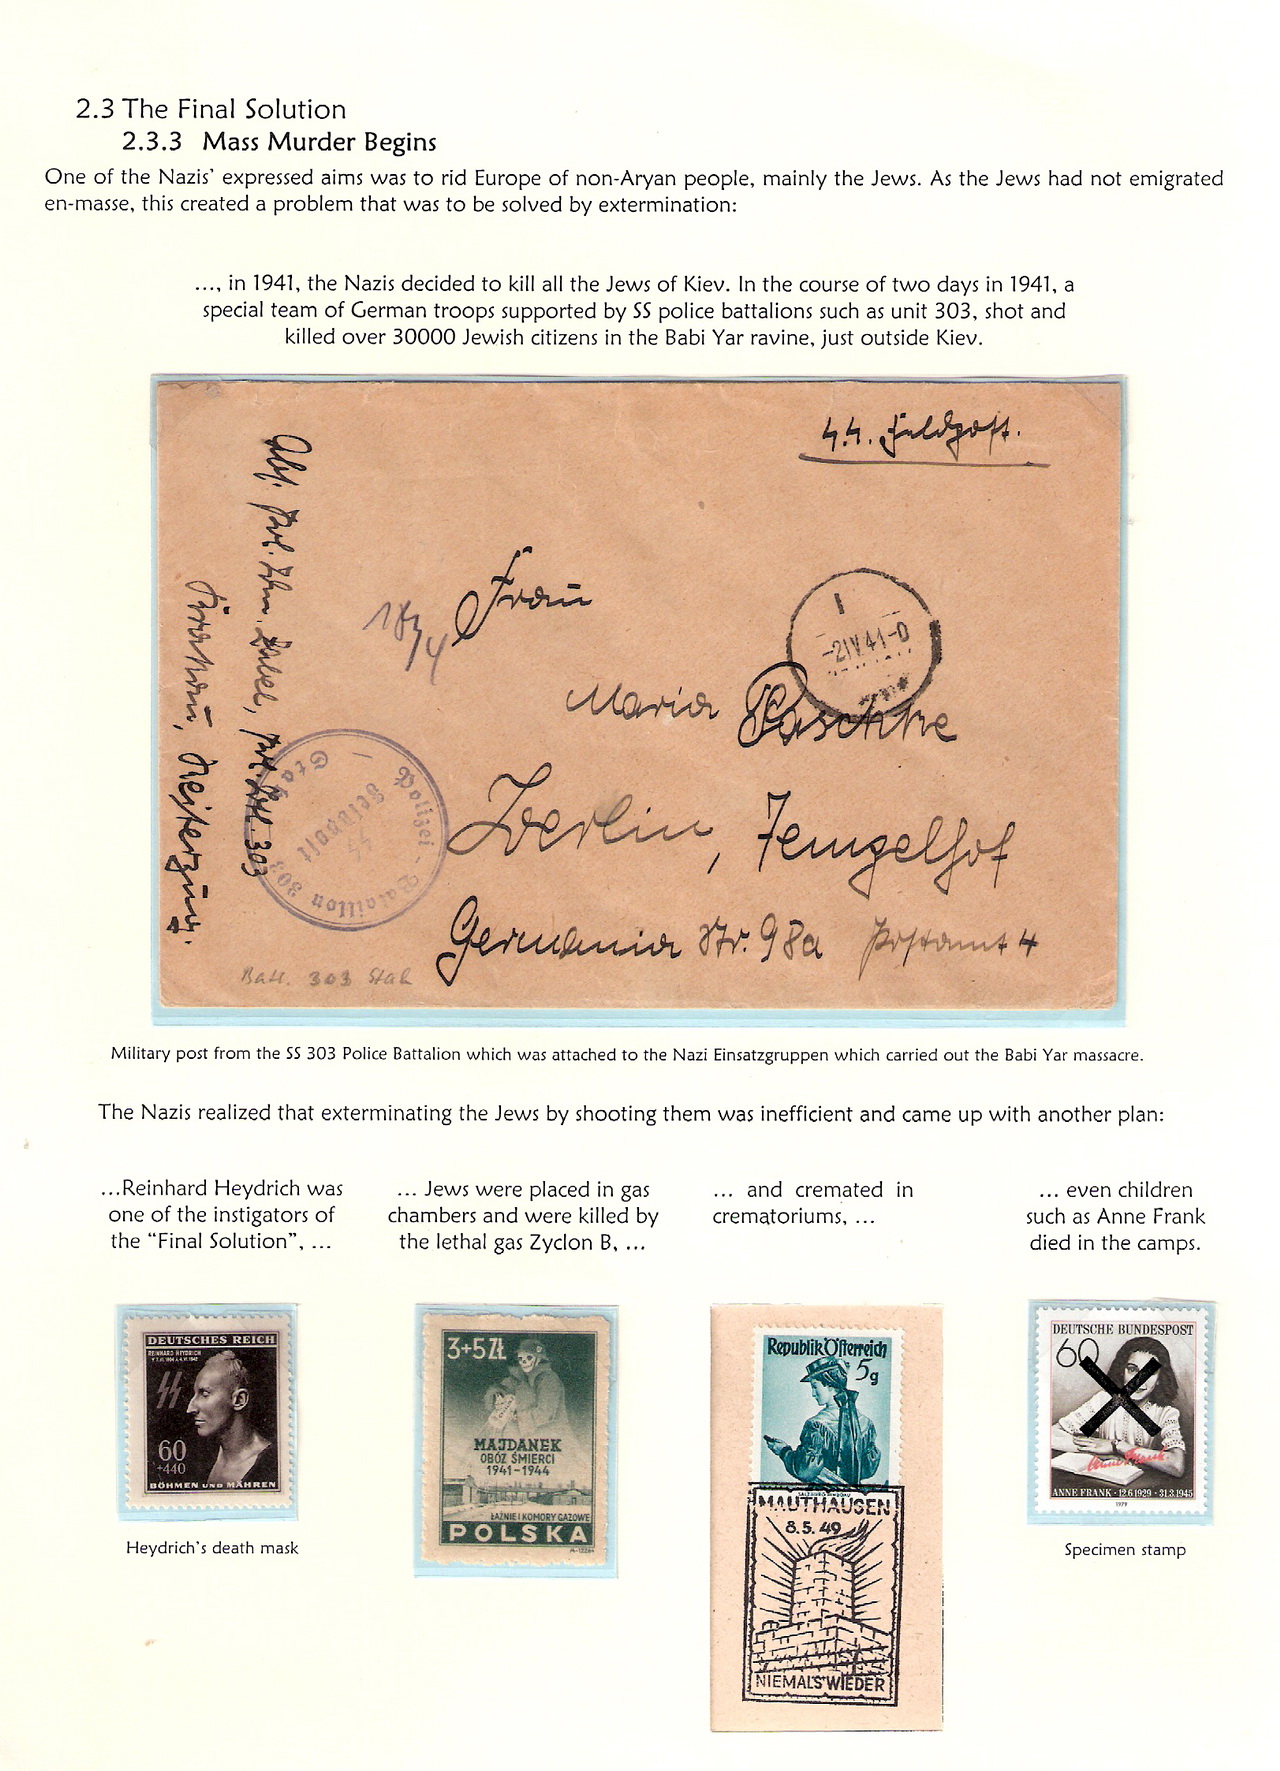 2.3 The Final Solution
2.3.3 Mass Murder Begins
One of the Nazis' expressed aims was to rid Europe of non-Aryan people, mainly the Jews. As the Jews had not emigrated
en-masse, this created a problem that was to be solved by extermination:
..., in 1941, the Nazis decided to kill all the Jews of Kiev. In the course of two days in 1941, a
special team of German troops supported by SS police battalions such as unit 303, shot and
killed over 30000 Jewish citizens in the Babi Yar ravine, just outside Kiev.
SS. Feldpost.
Frau
18/4
-2IV41-0
Maria Paschke
Berlin, Tempelhof
Germania Str. 98a Postamt 4
Polizei-Bataillon 303
Feldpost
Stab
Batl. 303 Stab
Military post from the SS 303 Police Battalion which was attached to the Nazi Einsatzgruppen which carried out the Babi Yar massacre.
The Nazis realized that exterminating the Jews by shooting them was inefficient and came up with another plan:
...Reinhard Heydrich was
one of the instigators of
the "Final Solution", ...
... Jews were placed in gas
chambers and were killed by
the lethal gas Zyclon B, ...
... and cremated in
crematoriums, ...
... even children
such as Anne Frank
died in the camps.
DEUTSCHES REICH
REINHARD HEYDRICH
60
+440
BÖHMEN UND MÄHREN
Heydrich's death mask
3+5 ZŁ
MAJDANEK
OBÓZ ŚMIERCI
1941-1944
ŁAŹNIE I KOMORY GAZOWE
POLSKA
Republik Österreich
5g
MAUTHAUSEN
8.5.49
NIEMALS WIEDER
DEUTSCHE BUNDESPOST
60
Anne Frank
ANNE FRANK · 12.6.1929 - 31.3.1945
1979
Specimen stamp